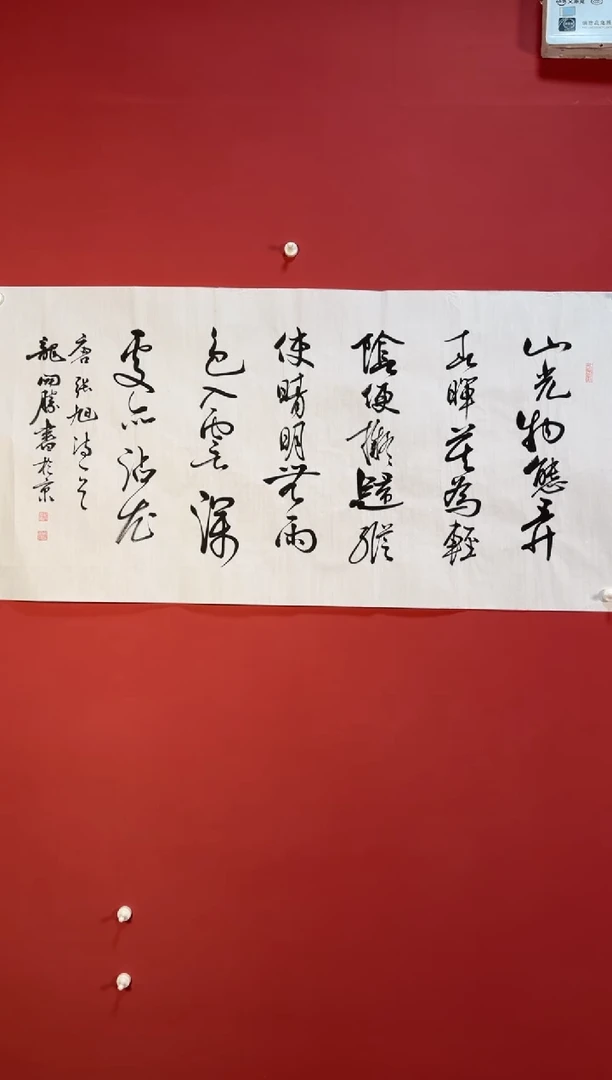 山光物態弄
春暉莫為輕
陰便擬歸縱
使晴明無雨
色入雲深
處亦沾衣
唐張旭詩一首
龍開勝書於京